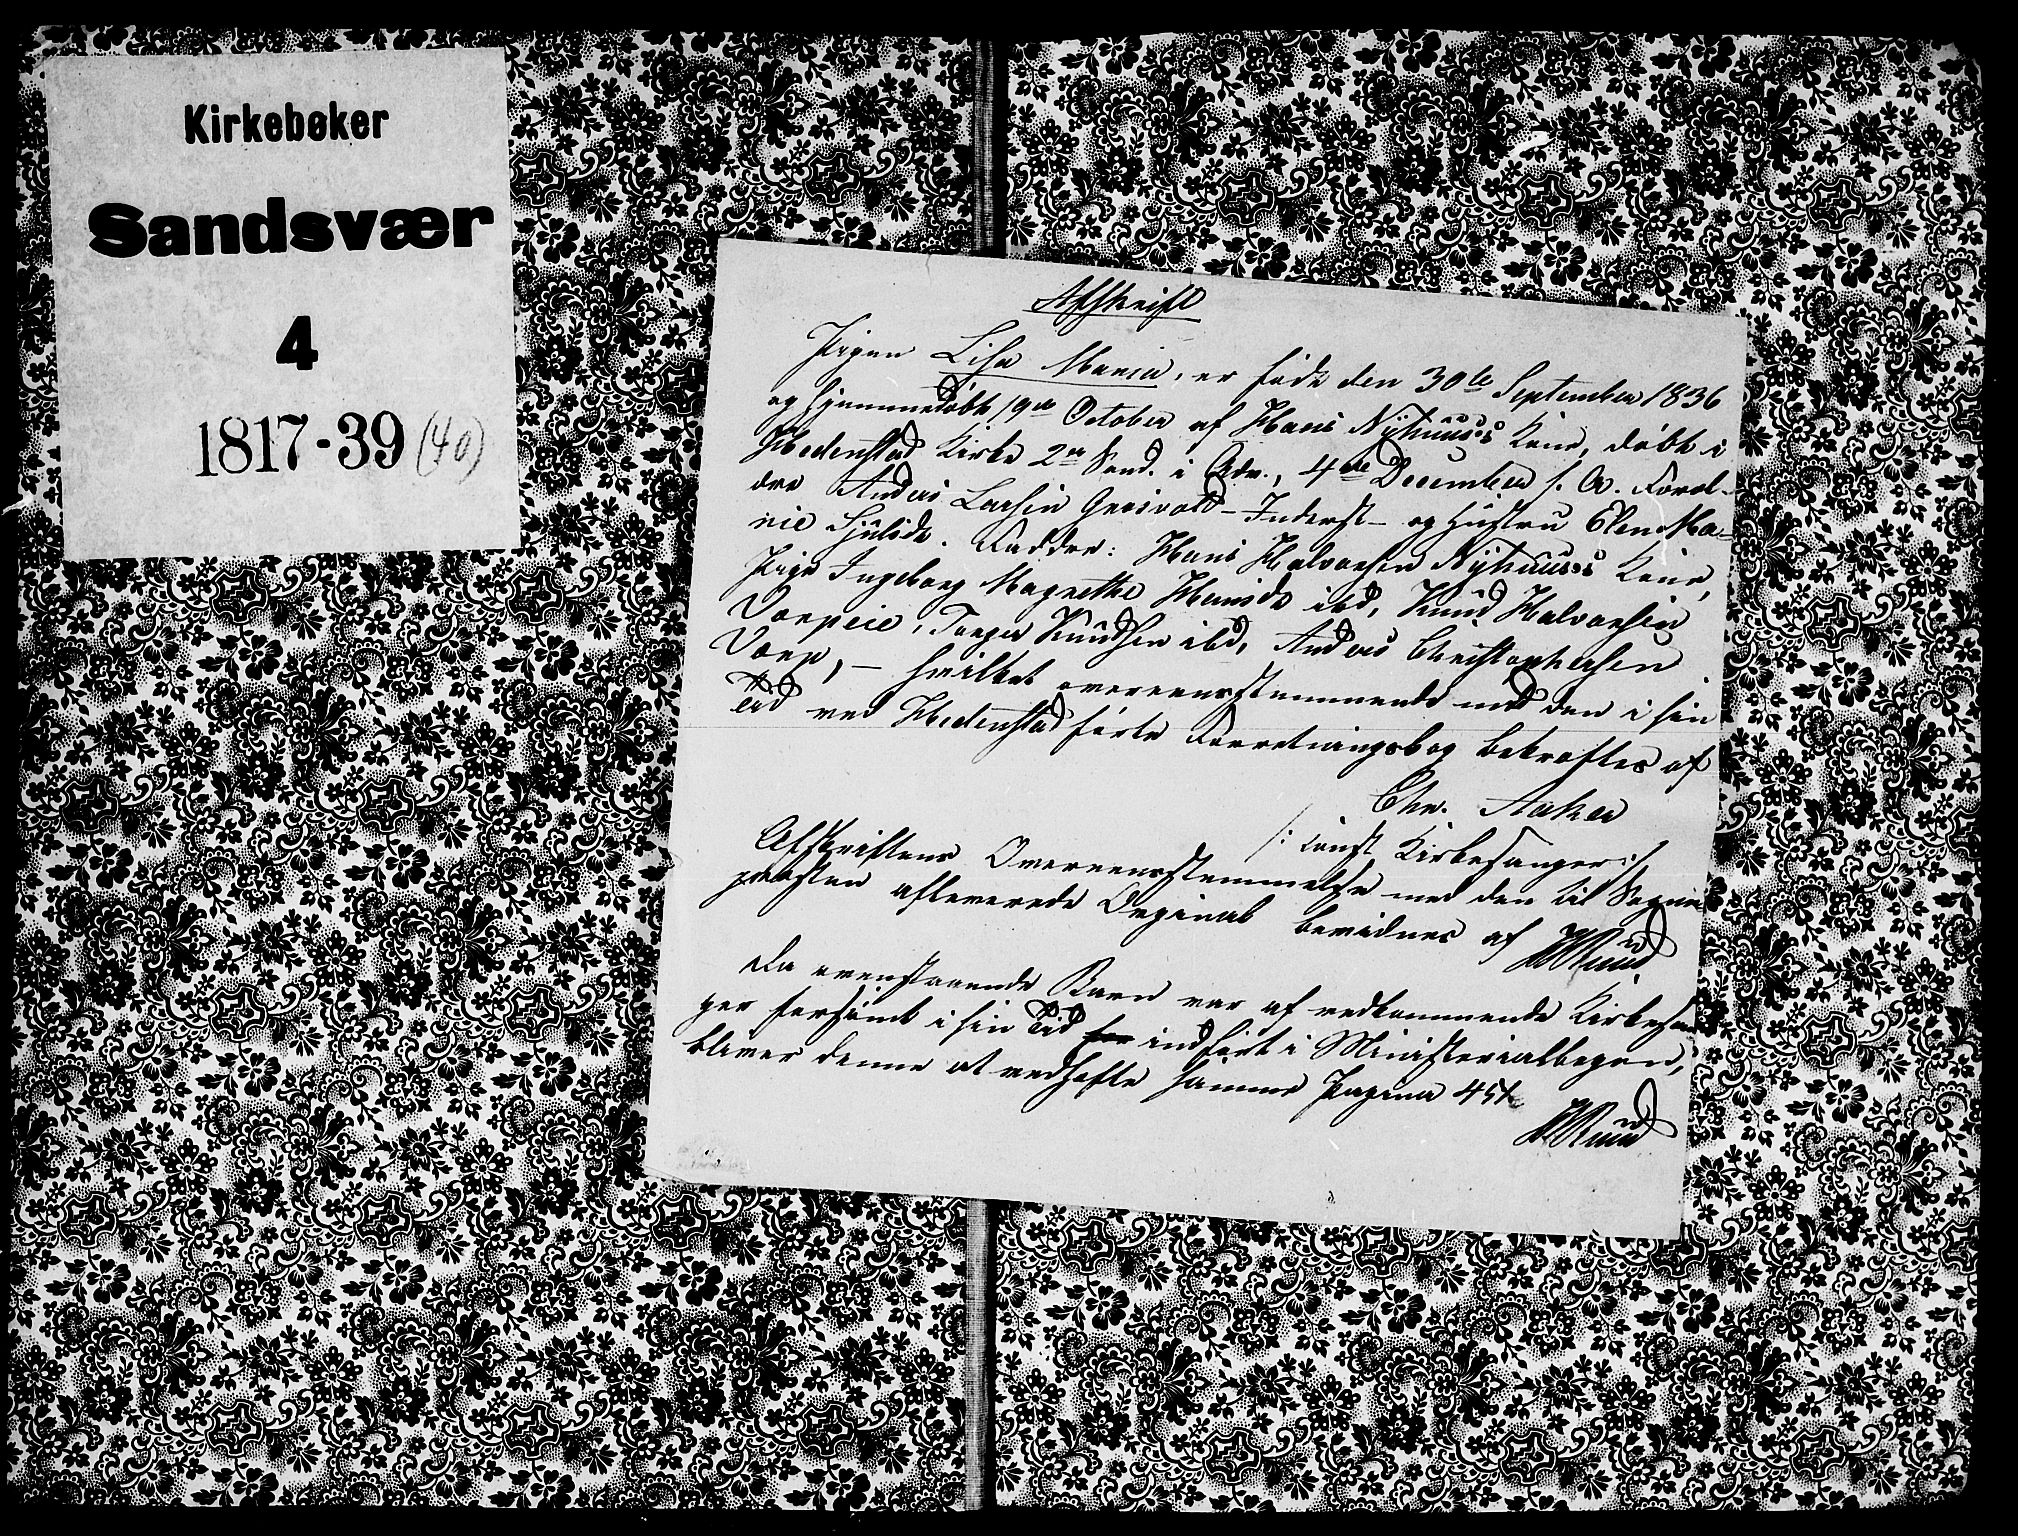 Kirkebøker
Sandsvær
4
1817-39 (40)
Afskrift
Pigen Lisa Maria, er født den 30te September 1836
og hjemmedøbt 19de October af Hans Nyhuus's Kone, døbt i
Hedenstad Kirke 2den Sønd. i Adv., 4de December s. A. Foræl-
dre Anders Larsen Inderst og Hustru Elen Ma-
rie Faddre: Hans Halvorsen Nyhuus's Kone,
Pige Ingeborg Magrethe Hansdr ibd, Knud Halvorsen
Vorpeie, Knudsen ibd, Anders Christophersen
Vorp, – hvilket overeensstemmende med den i sin
Tid ved Hedenstad førte Forretningsbog bekræftes af
Chr. Aaker
/: const. Kirkesanger :/
Afskriftens Overeensstemmelse med den til Sogne-
præsten afleverede Orginal bevidnes af HRuud
Da ovenstaaende Barn var af vedkommende Kirkesan-
ger forsømt i sin Tid indført i Ministerialbogen,
bliver denne at vedhefte samme Pagina 451.
HRuud